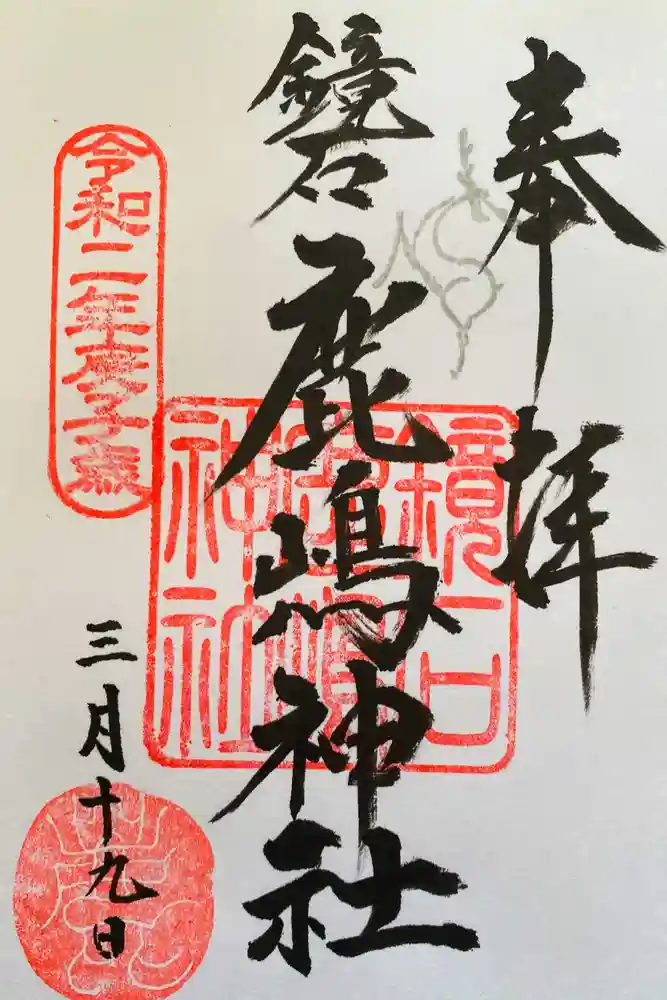 奉拝
鏡石鹿嶋神社
鏡石鹿嶋神社
令和二年庚子歳
三月十九日